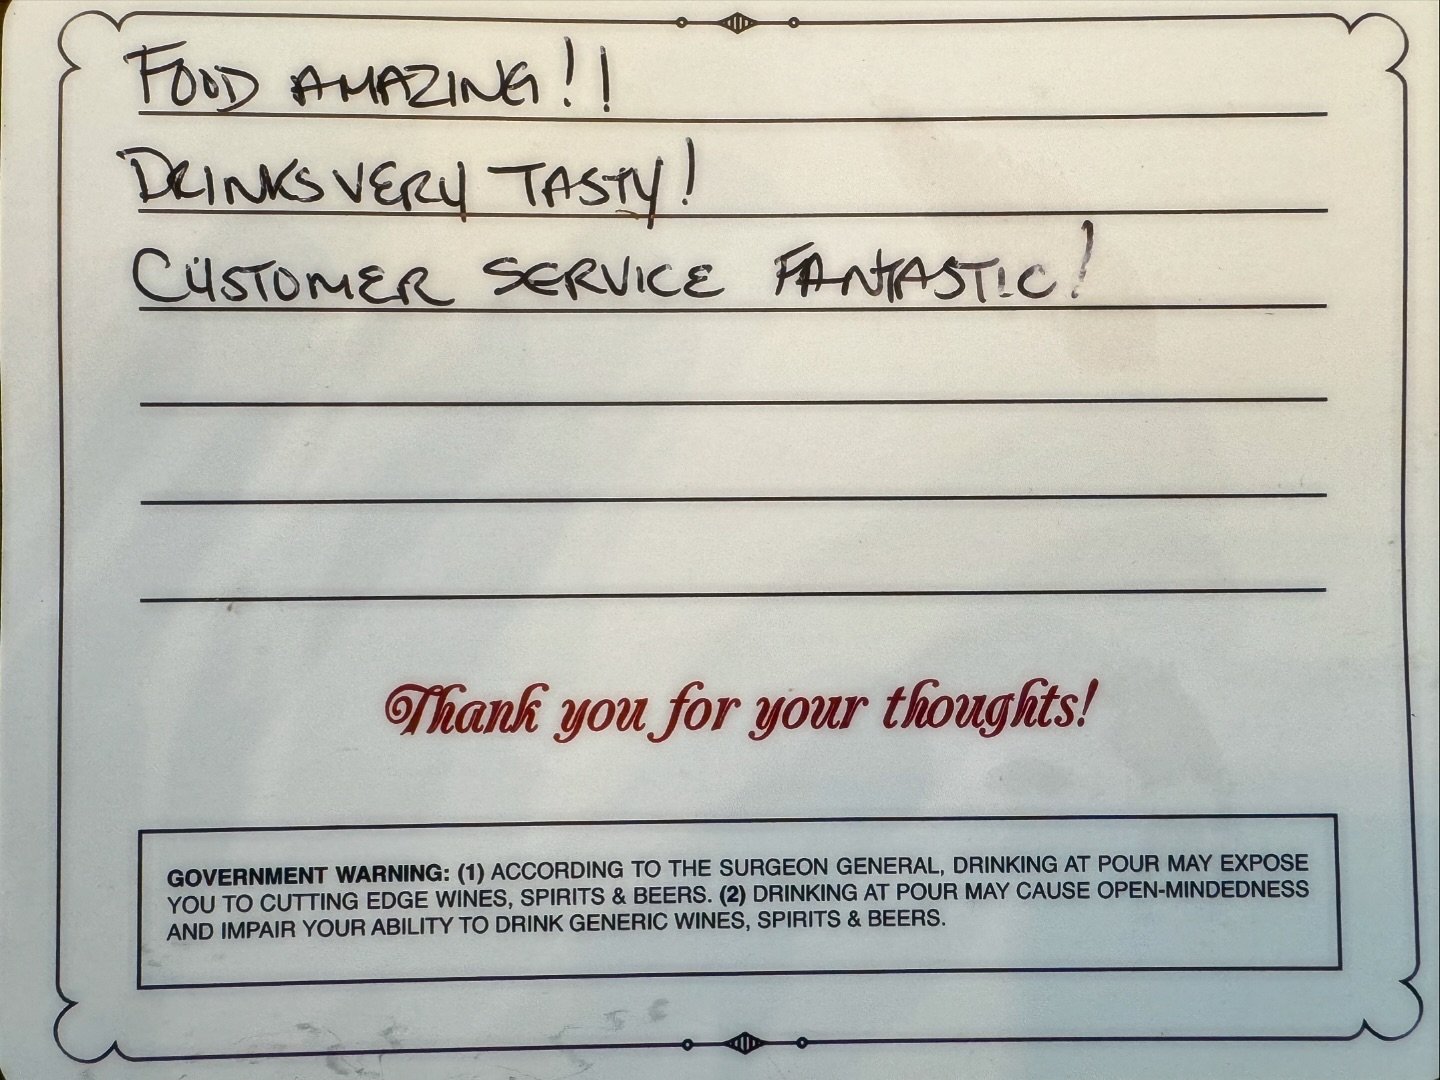 FOOD AMAZING!!
DRINKS VERY TASTY!
CUSTOMER SERVICE FANTASTIC!
Thank you for your thoughts!
GOVERNMENT WARNING: (1) ACCORDING TO THE SURGEON GENERAL, DRINKING AT POUR MAY EXPOSE
YOU TO CUTTING EDGE WINES, SPIRITS & BEERS. (2) DRINKING AT POUR MAY CAUSE OPEN-MINDEDNESS
AND IMPAIR YOUR ABILITY TO DRINK GENERIC WINES, SPIRITS & BEERS.